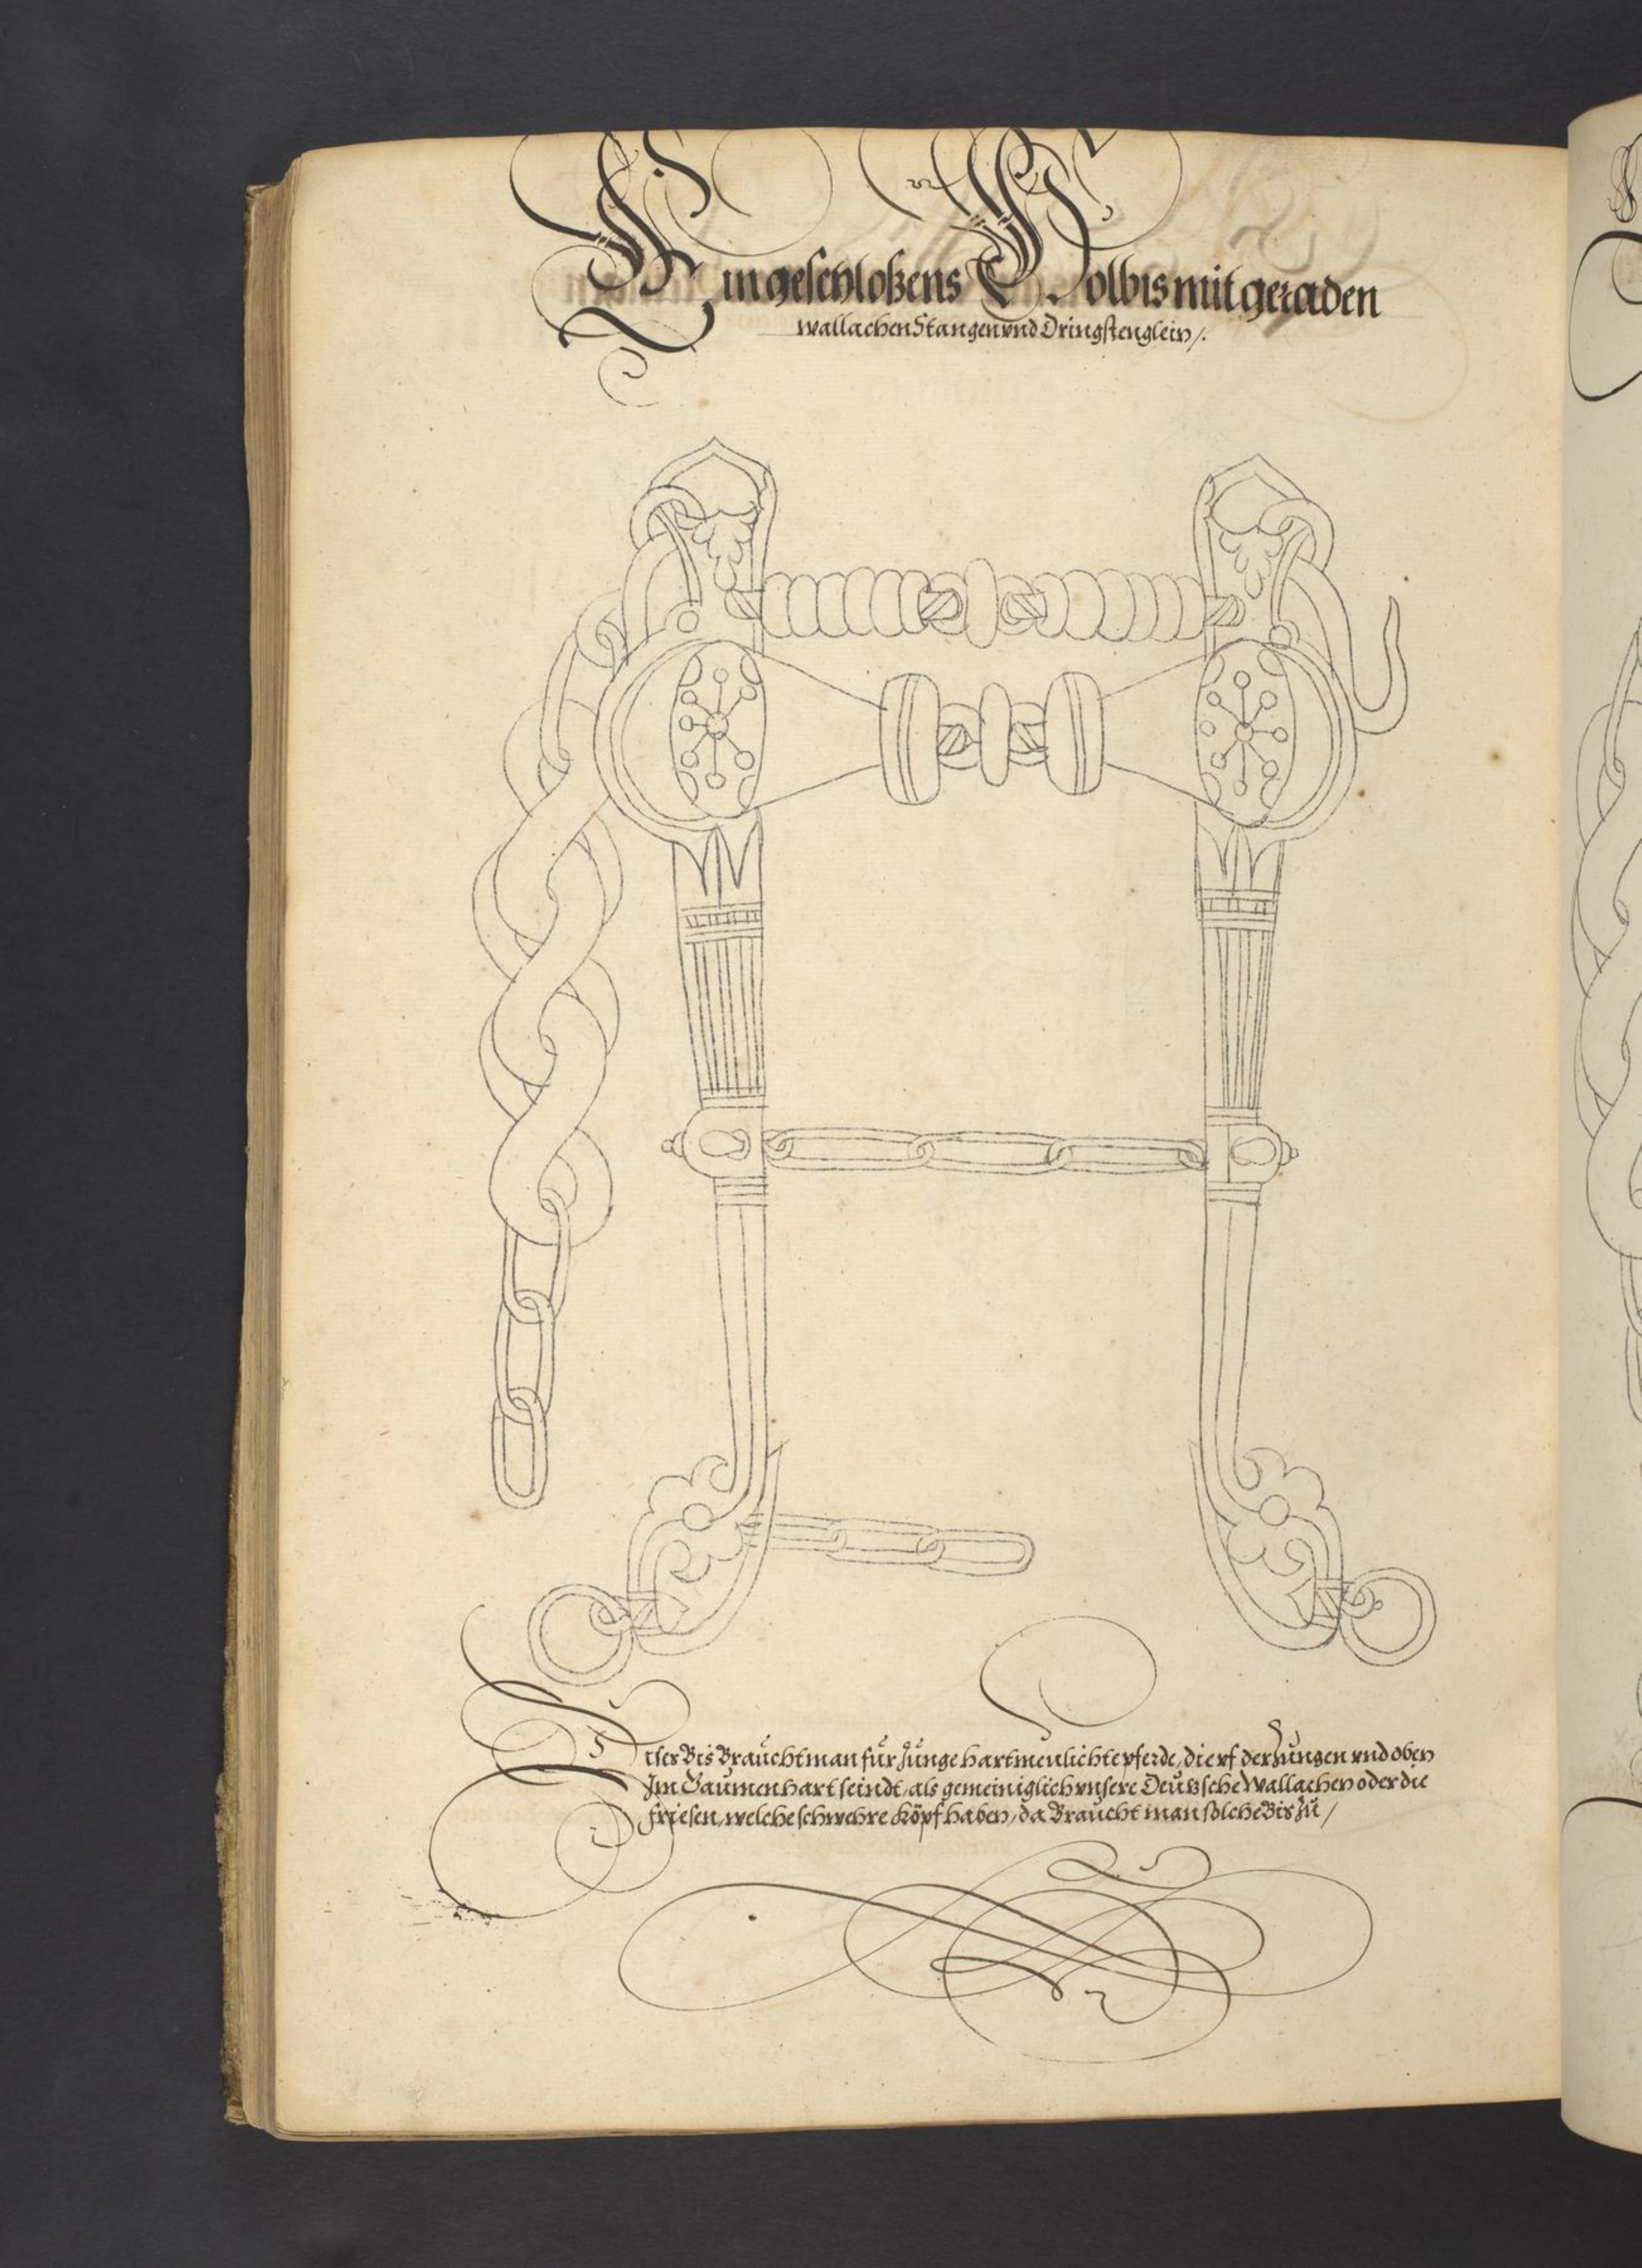 Ein geschloßens Holbis mit geraden
wallachen Stangen vnd Dringstenglein /.
Diser Bis Braucht man für Junge hartmeulichte pferde, die vf der Zungen vnd oben
Im Gaumen hart seindt, als gemeiniglich vnsere Deutzsche Wallachen oder die
friesen, welche schwehre köpf haben, da Braucht man solche Bis zu /